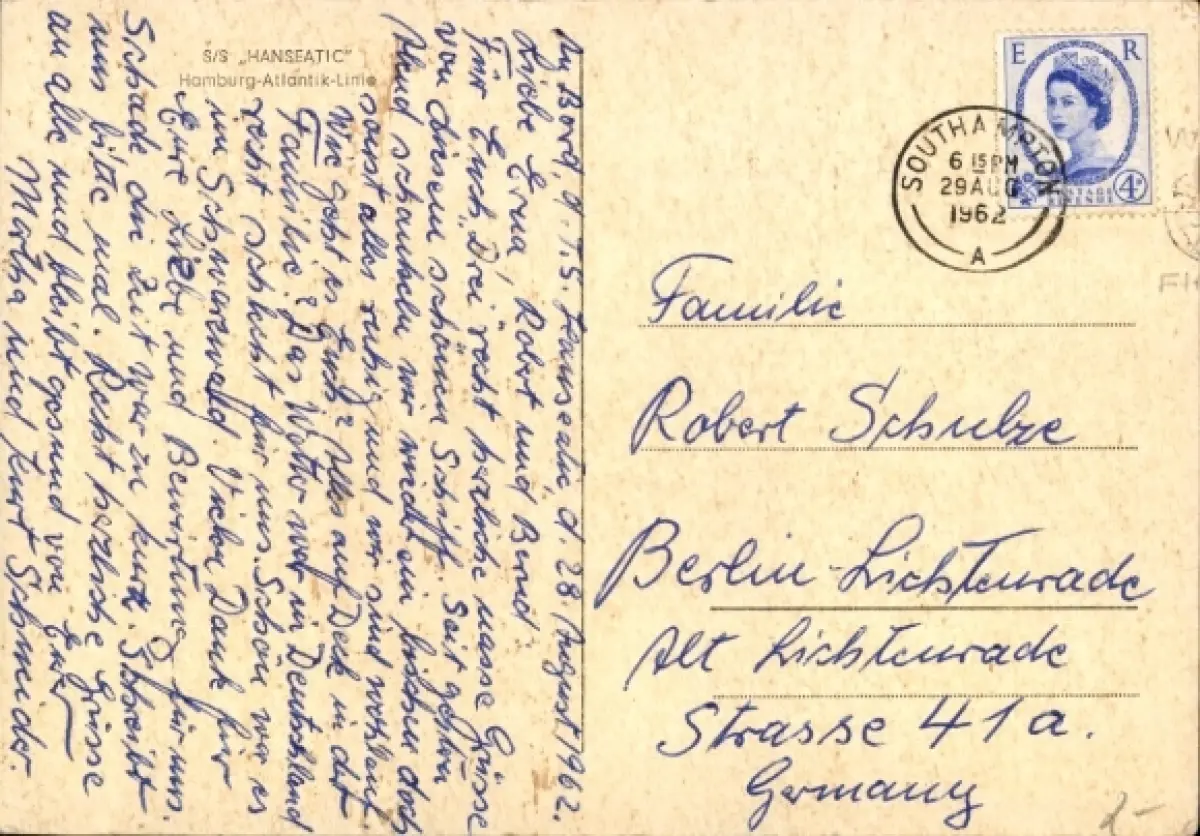 S/S „HANSEATIC"
Hamburg-Atlantik-Linie
An Bord, d. T.S. Hanseatic, d. 28 August 1962.
Liebe Erna, Robert und Bernd.
Für Euch Drei recht herzliche nasse Grüsse
von diesem schönen Schiff. Seit gestern
Abend schaukeln wir wieder ein bischen doch
sonst alles ruhig und wir sind wohlauf
Wie geht es Euch? Alles auf Deck in der
Familie? Das Wetter war in Deutschland
recht schlecht für uns. Schön war es
im Schwarzwald. Vielen Dank für
Eure Liebe und Bewirtung für uns.
Schade die Zeit war zu kurz. Schreibt
uns bitte mal. Recht herzliche Grüsse
an alle und bleibt gesund von Eure
Martha und Kurt Schneider.
E R
POSTAGE
REVENUE
4D
SOUTHAMPTON
6 15 PM
29 AUG
1962
A
Familie
Robert Schulze
Berlin-Lichtenrade
Alt Lichtenrade
Strasse 41a.
Germany
2-